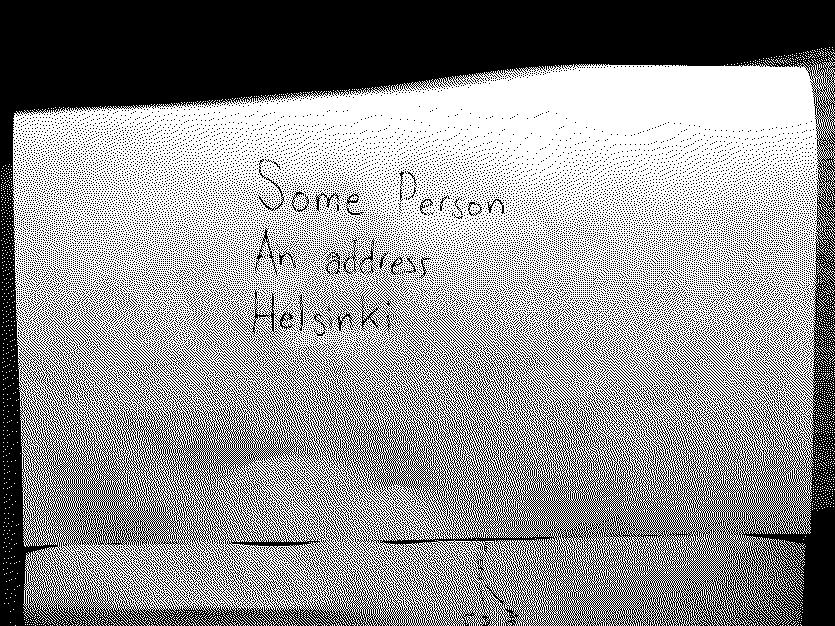 Some Person
An address
Helsinki